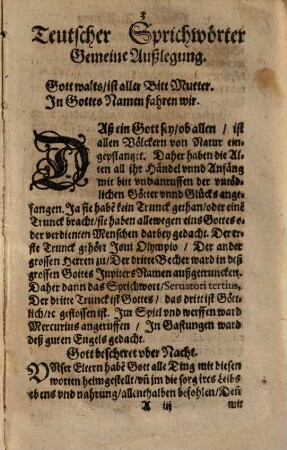 3
Teutscher Sprichwörter
Gemeine Außlegung.
Gott walts/ ist aller Bitt Mutter.
In Gottes Namen fahren wir.
DAß ein Gott sey/ ob allen / ist
allen Völckern von Natur ein-
gepflantzt. Daher haben die Al-
ten all jhr Händel vnnd Anfäng
mit bitt vnd anruffen der
lichen Götter vnnd Glücks ange-
fangen. Ja sie habē kein Trunck gethan/ oder einē
Trunck bracht/ sie haben allewegen eins Gottes o-
der verdienten Menschen darbey gedacht. Der er-
ste Trunck gehört Joui Olympio / Der ander
grossen Herren zu/ Der dritte Becher ward in deß
grossen Gottes Jupiters Namen außgetruncken.
Daher dann das Sprichwort/ Seruatori tertius,
Der dritte Trunck ist Gottes / das dritt ist Gött-
lich/ ꝛc geflossen ist. Im Spiel vnd werffen ward
Mercurius angeruffen / In Gastungen ward
deß guten Engels gedacht.
Gott bescheret vber Nacht.
VNser Eltern habē Gott alle Ding mit diesen
worten heimgestellt/ vñ jm die sorg jres Leibs
lebens vnd nahrung/ allenthalben befohlen/ Deñ
A iij
mit